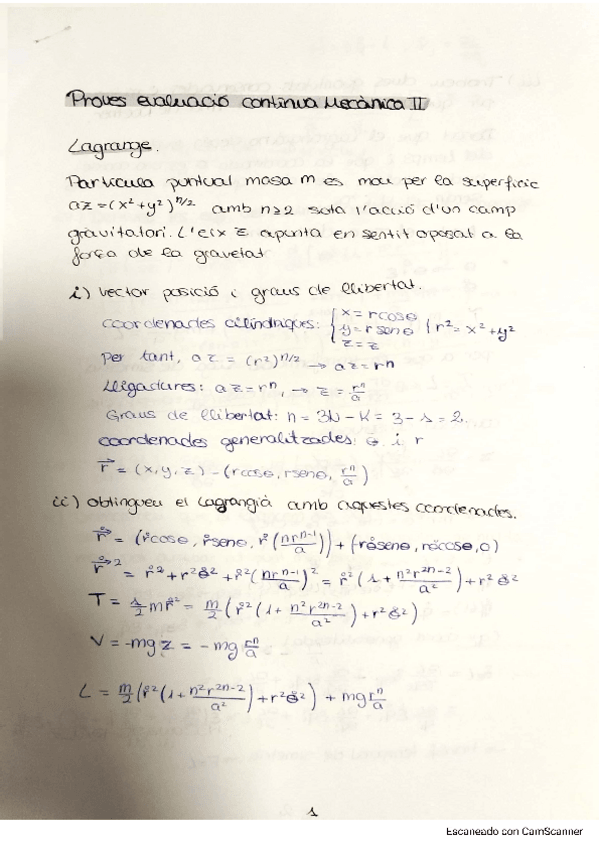 Proves evaluació contínua Mecànica II
Lagrange.
Partícula puntual massa m es mou per la superfície
az = (x² + y²)^{n/2} amb n≥2 sota l'acció d'un camp
gravitatori. L'eix z apunta en sentit oposat a la
força de la gravetat.
i) vector posició i graus de llibertat.
coordenades cilíndriques: { x = r cosθ
y = r senθ { r² = x² + y²
z = z
Per tant, az = (r²)^{n/2} → az = rⁿ
Lligadures: az = rⁿ, → z = rⁿ/a
Graus de llibertat: n = 3N - K = 3 - 1 = 2.
coordenades generalitzades: θ i r
r⃗ = (x, y, z) - (r cosθ, r senθ, rⁿ/a)
ii) obtingueu el Lagrangià amb aquestes coordenades.
r⃗̇ = (ṙcosθ, ṙsenθ, ṙ(nrⁿ⁻¹/a)) + (-rθ̇senθ, rθ̇cosθ, 0)
r⃗̇² = ṙ² + r²θ̇² + ṙ²(nrⁿ⁻¹/a)² = ṙ²(1 + n²r²ⁿ⁻²/a²) + r²θ̇²
T = 1/2 mṙ² = m/2 (ṙ²(1 + n²r²ⁿ⁻²/a²) + r²θ̇²)
V = -mgz = -mg rⁿ/a
L = m/2 (ṙ²(1 + n²r²ⁿ⁻²/a²) + r²θ̇²) + mg rⁿ/a
1
Escaneado con CamScanner